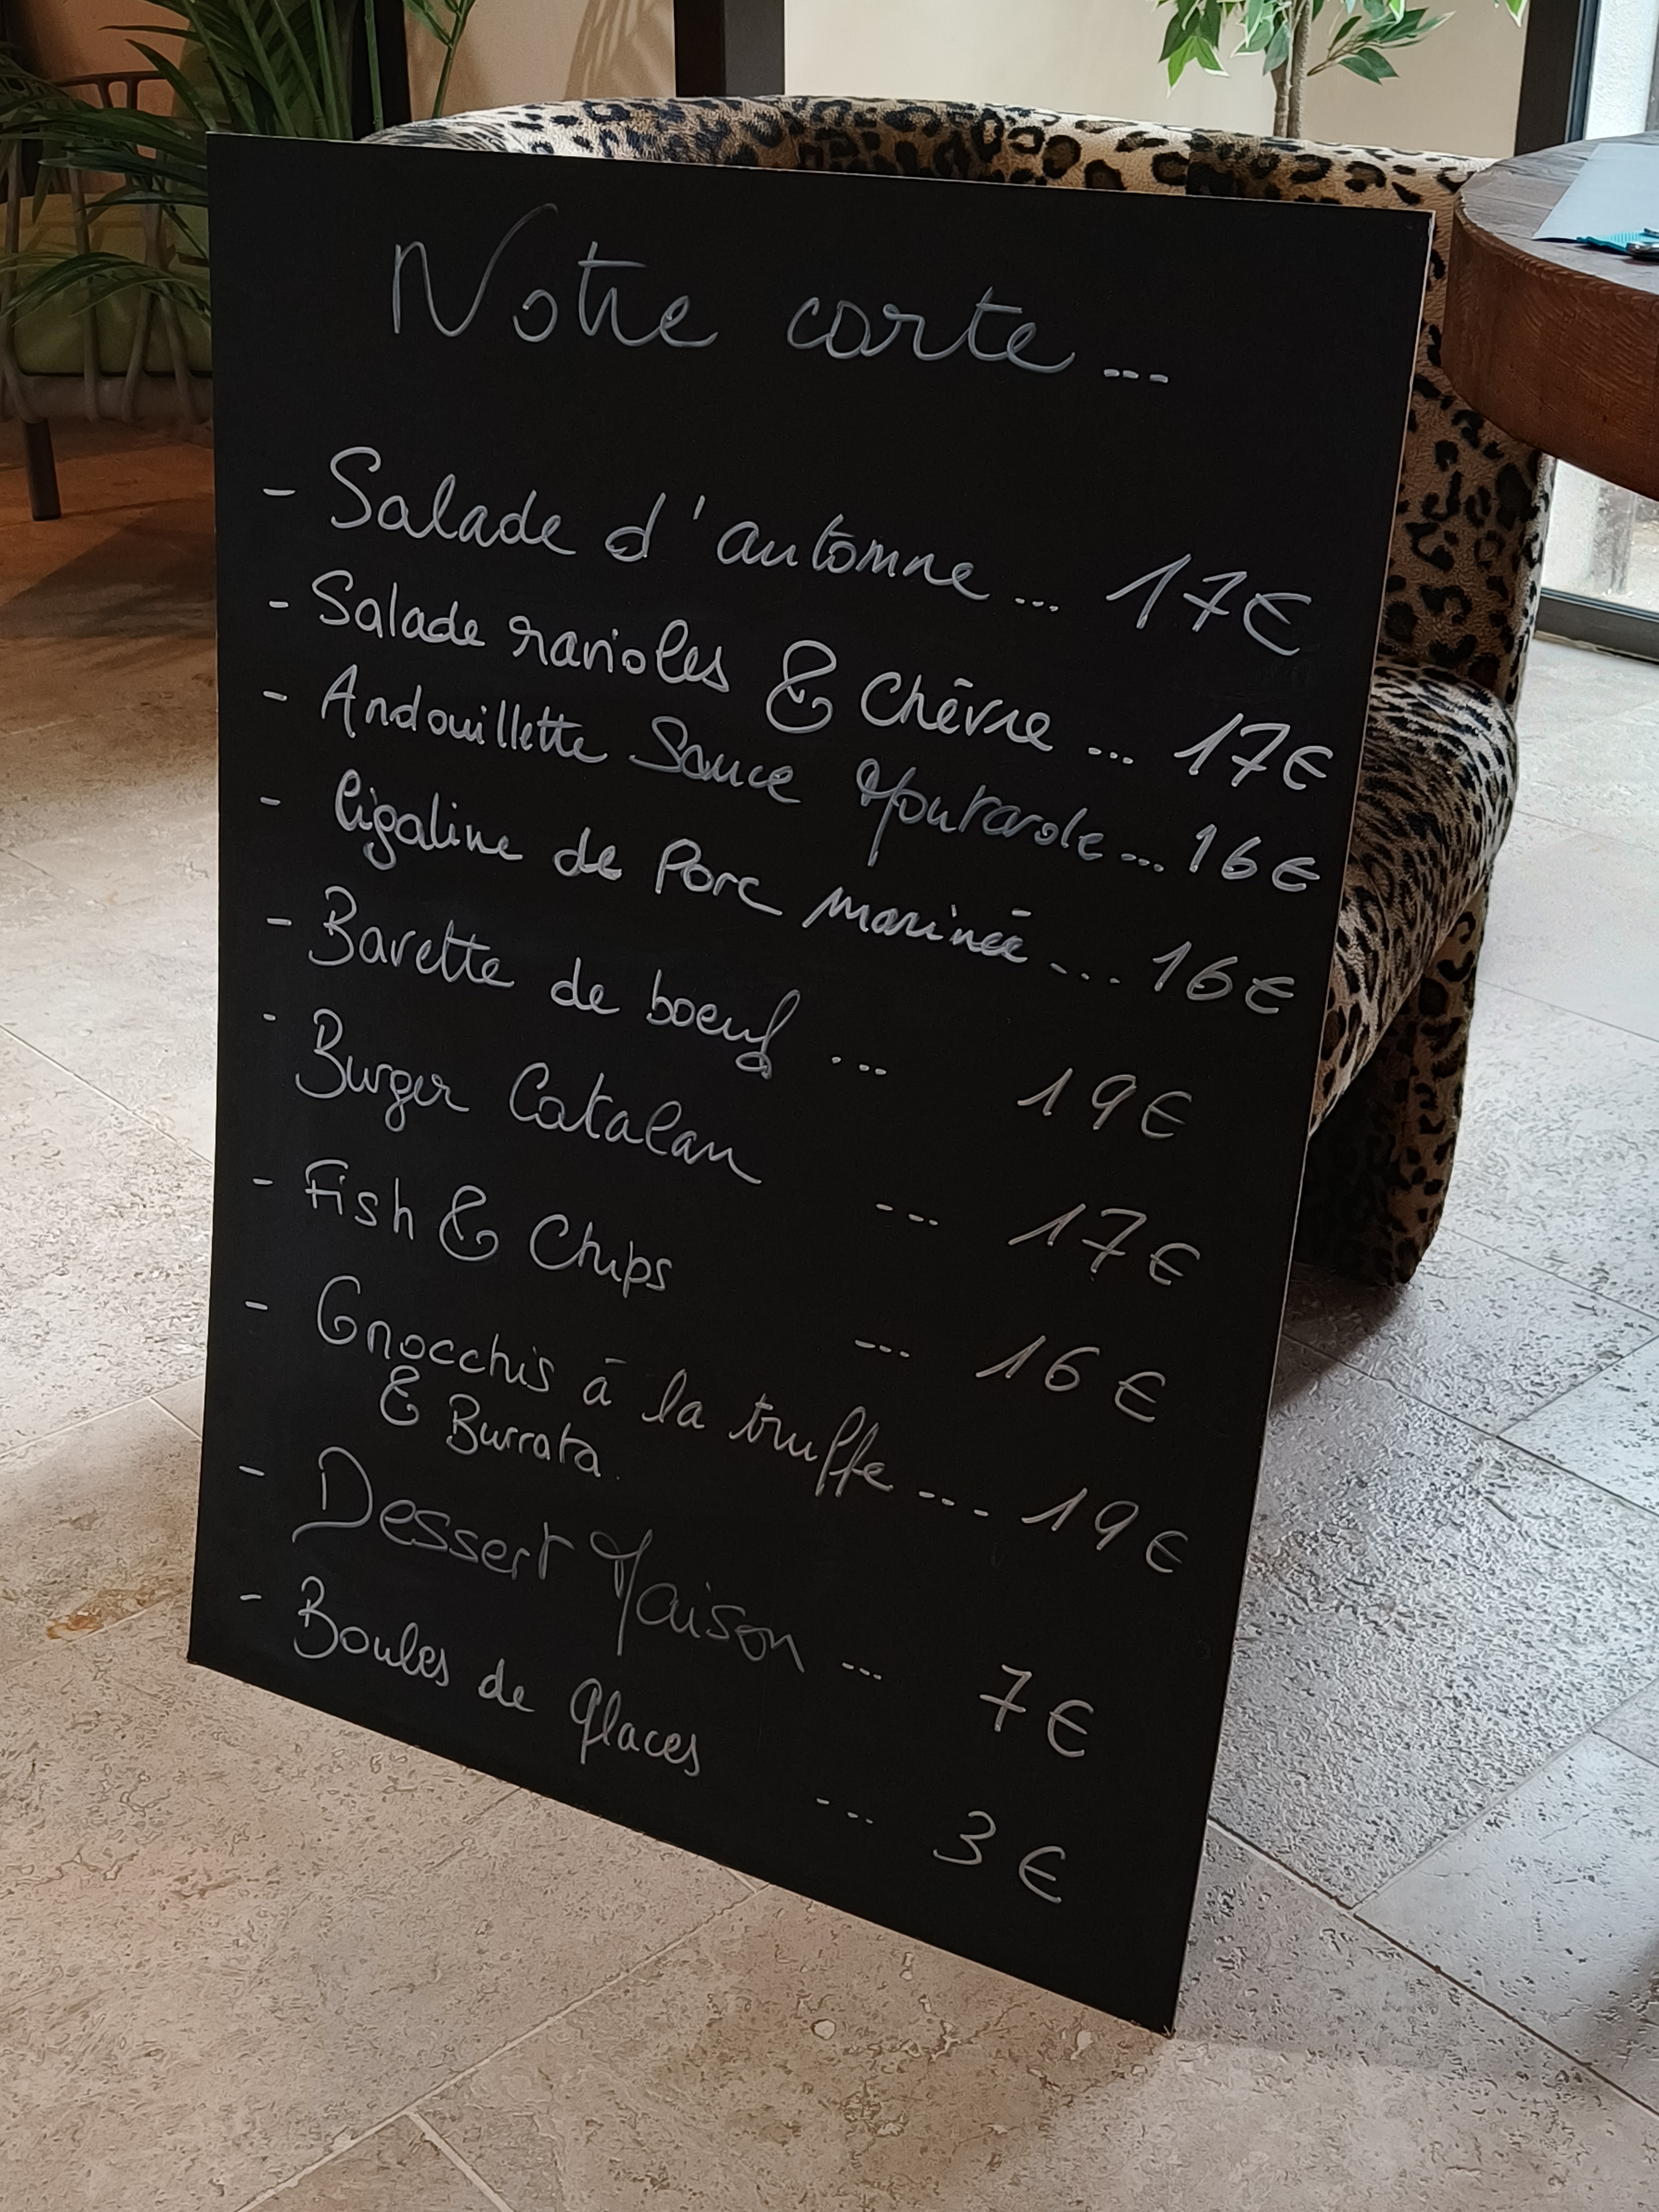 Notre carte...
- Salade d'automne... 17€
- Salade ravioles & Chèvre... 17€
- Andouillette Sauce Moutarde... 16€
- Cigaline de Porc marinée... 16€
- Bavette de boeuf... 19€
- Burger Catalan ... 17€
- Fish & Chips ... 16€
- Gnocchis à la truffe... 19€
& Burrata
- Dessert Maison... 7€
- Boules de glaces ... 3€